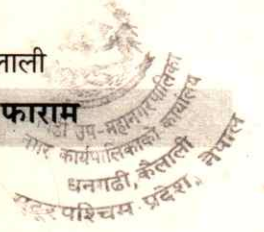 लाली
फाराम
उप-महानगरपालिका
नगर कार्यपालिकाको कार्यालय
धनगढी, कैलाली
सुदूरपश्चिम प्रदेश, नेपाल